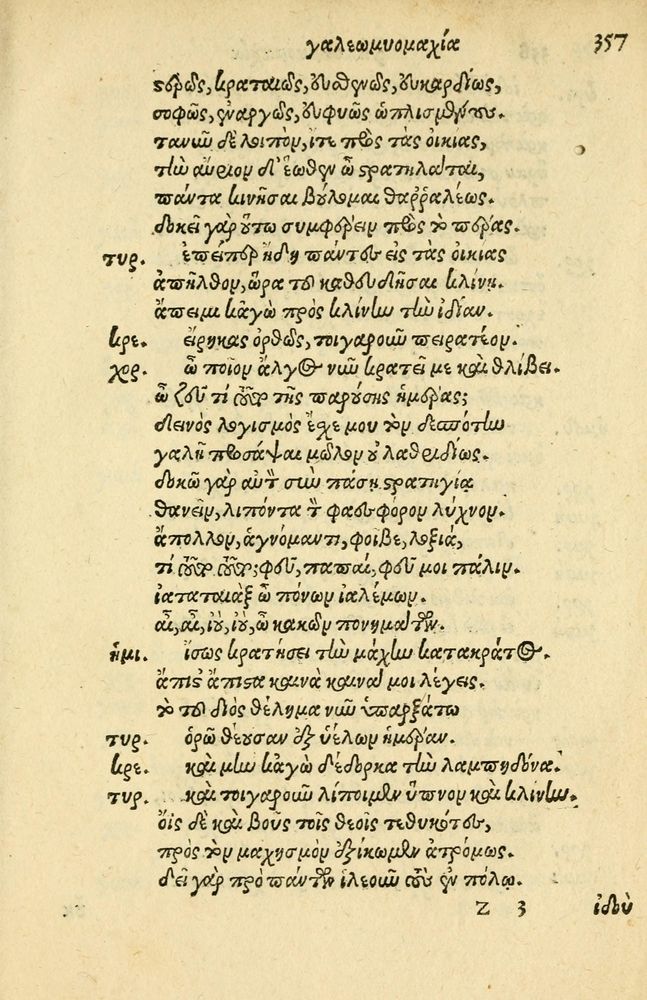 γαλεωμυομαχία 357
στερρῶς, κραταιῶς, εὐσθενῶς, εὐκαρδίως,
σοφῶς, ἐναργῶς, εὐφυῶς ὡπλισμένοι.
τανῦν δὲ λοιπὸν, ἴτε πρὸς τὰς οἰκίας,
τὴν αὔριον δ' ἕωθεν ὦ στρατηλάται,
πάντα κινῆσαι βούλομαι θαῤῥαλέως.
δοκεῖ γὰρ οὕτω συμφέρειν πρὸς τὸ πέρας.
τυρ. ἐπείπερ ἤδη πάντες εἰς τὰς οἰκίας
ἀπῆλθον, ὥρα τοι καθευδῆσαι κλίνῃ.
ἄπειμι κἀγὼ πρὸς κλίνην τὴν ἰδίαν.
κρε. εἴρηκας ὀρθῶς, τοιγαροῦν πειρατέον.
χορ. ὦ ποῖον ἄλγος νῦν κρατεῖ με καὶ θλίβει.
ὦ ζεῦ τί τῆς παρούσης ἡμέρας;
δεινὸς λογισμὸς ἔχε μου τὸν δεσπότην
γαλῇ προσάψαι μῶλον οὐ λαθριδίως.
δοκῶ γὰρ αὐτὸν σὺν πάσῃ στρατηγίᾳ
θανεῖν, λιπόντα τὸν φαεσφόρον λύχνον.
ἄπολλον, ἁγνόμαντι, φοῖβε, λοξία,
τί φεῦ, παπαῖ, φεῦ μοι πάλιν.
ἰαταταιὰξ ὦ πόνων ἰαλέμων.
αἲ, αἲ, ἰοὺ, ἰοὺ, ὦ κακῶν πονημάτων.
ἡμι. ἴσως κρατήσει τὴν μάχην κατακράτος.
ἄπιστ' ἄπιστα καινὰ καινά μοι λέγεις.
τὸ τοῦ διὸς θέλημα νῦν ὑπαρξάτω
τυρ. ὁρῶ θέουσαν ἐξ ὑέλων ἡμέραν.
κρε. καὶ μὴν κἀγὼ δέδορκα τὴν λαμπηδόνα.
τυρ. καὶ τοιγαροῦν λίποιμεν ὕπνον καὶ κλίνην.
ὄις δὲ καὶ βοῦς τοῖς θεοῖς τεθυκότες,
πρὸς τὸν μαχησμὸν ἐξίκωμεν ἀτρόμως.
δεῖ γὰρ πρὸ πάντων ἱλεοῦν ἐν πόλῳ.
Z 3 ἰδοὺ